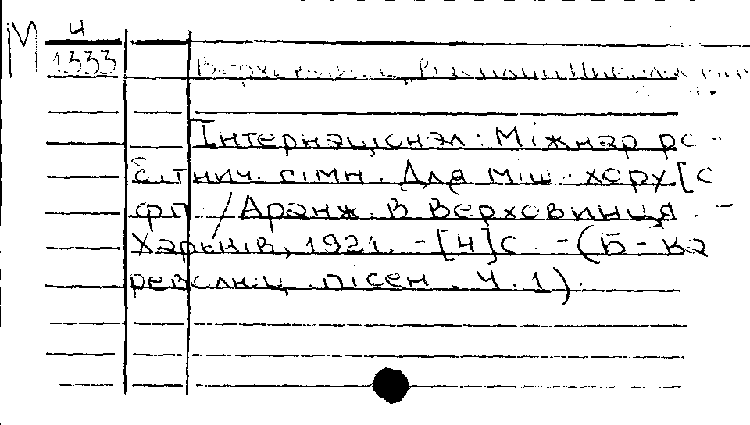 М 4
1333
Інтернаціонал: Міжнар ро-
бітнич. гімн. Для міш. хору [с
фп / Аранж. В Верховинця -
Харьків, 1921. - [4] с. - (Б-ка
революц. пісен. Ч. 1).